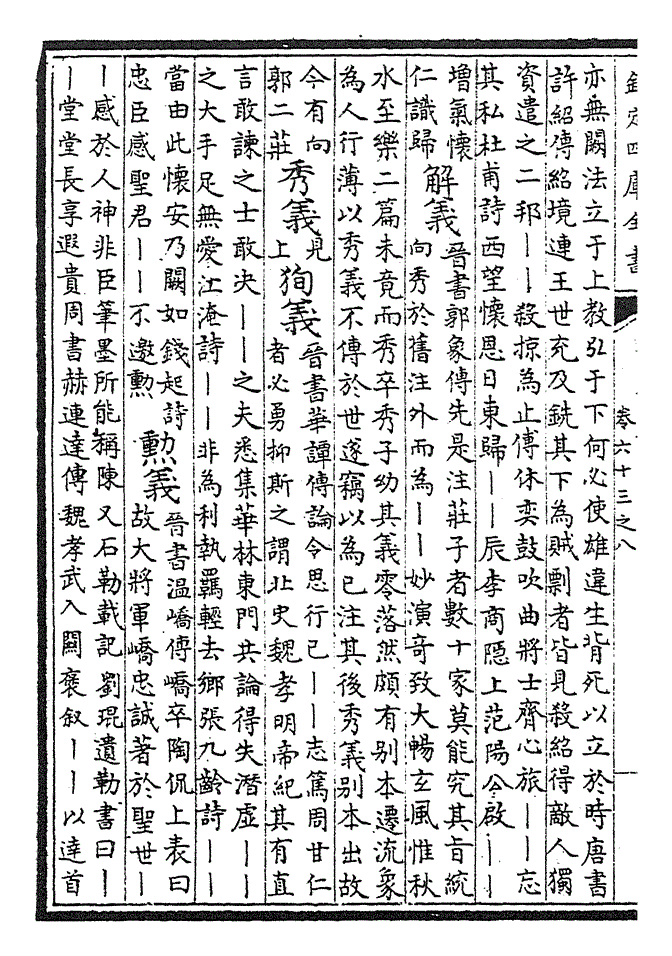 欽定四庫全書
卷六十三之八
亦無闕法立于上教弘于下何必使雄違生背死以立於時唐書
許紹傳紹境連王世充及銑其下為賊剽者皆見殺紹得敵人獨
資遣之二邦——殺掠為止傅休奕鼓吹曲將士齊心旅——忘
其私杜甫詩西望懷思日東歸——辰李商隱上范陽公啟——
增氣懷
仁識歸
解義
晉書郭象傳先是注莊子者數十家莫能究其旨統
向秀於舊注外而為——妙演奇致大暢玄風惟秋
水至樂二篇未竟而秀卒秀子幼其義零落然頗有别本遷流象
為人行薄以秀義不傳於世遂竊以為己注其後秀義别本出故
今有向
郭二莊
秀義
見
上
狥義
晉書華譚傳論令思行己——志篤周甘仁
者必勇抑斯之謂北史魏孝明帝紀其有直
言敢諫之士敢决——之夫悉集華林東門共論得失潛虛——
之大手足無愛江淹詩——非為利執羈輕去鄉張九齡詩——
當由此懷安乃闕如錢起詩
忠臣感聖君——不邀勲
勲義
晉書温嶠傳嶠卒陶侃上表曰
故大將軍嶠忠誠著於聖世—
—感於人神非臣筆墨所能稱陳又石勒載記劉琨遺勒書曰—
—堂堂長享遐貴周書赫連達傳魏孝武入關褒叙——以達首